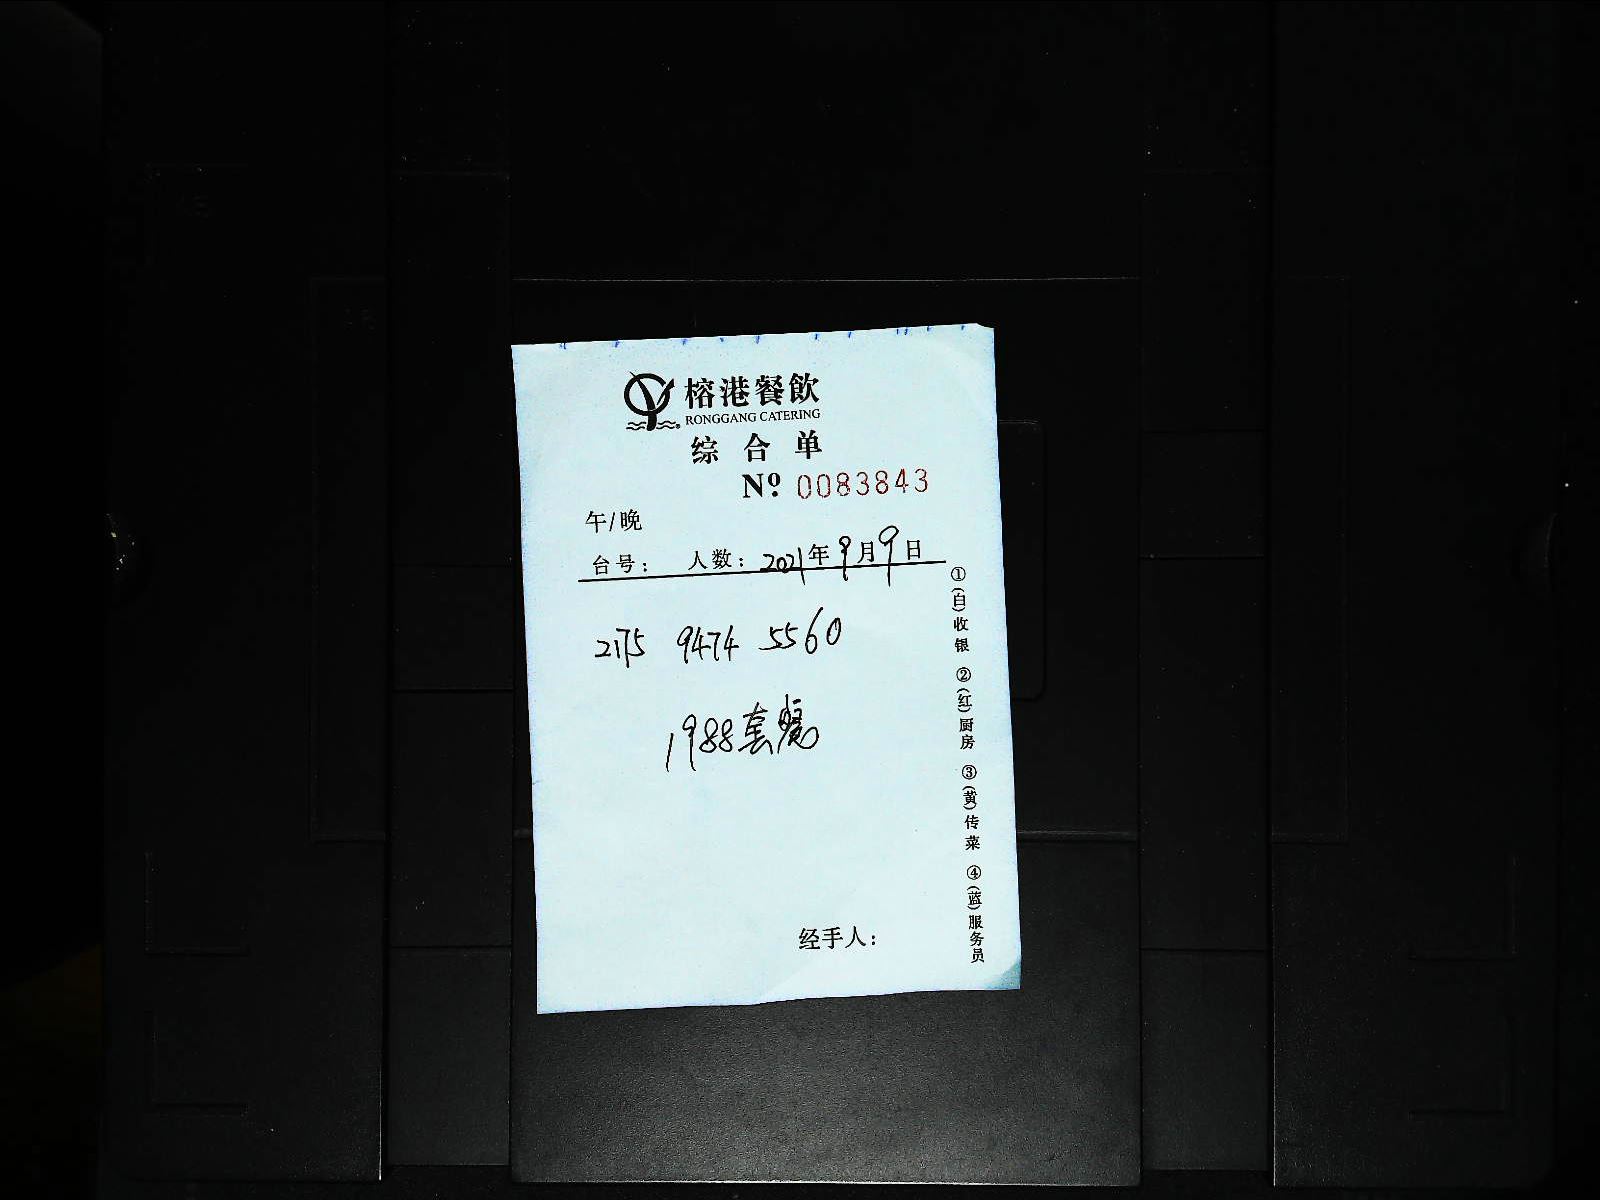 榕港餐飲
RONGGANG CATERING
综合单
Nº 0083843
午/晚
台号： 人数：2021年9月9日
2175 9474 5560
1988套餐
经手人：
①(白)收银 ②(红)厨房 ③(黄)传菜 ④(蓝)服务员